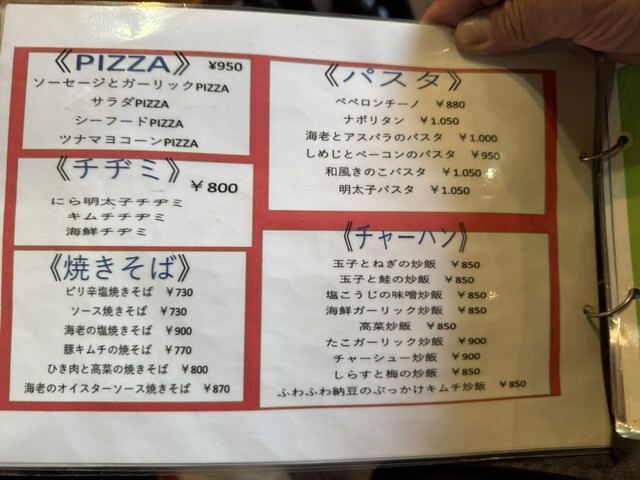 《PIZZA》 ¥950
ソーセージとガーリックPIZZA
サラダPIZZA
シーフードPIZZA
ツナマヨコーンPIZZA
《チヂミ》 ¥800
にら明太子チヂミ
キムチチヂミ
海鮮チヂミ
《焼きそば》
ピリ辛塩焼きそば ¥730
ソース焼きそば ¥730
海老の塩焼きそば ¥900
豚キムチの焼そば ¥770
ひき肉と高菜の焼きそば ¥800
海老のオイスターソース焼きそば ¥870
《パスタ》
ペペロンチーノ ¥880
ナポリタン ¥1.050
海老とアスパラのパスタ ¥1.000
しめじとベーコンのパスタ ¥950
和風きのこパスタ ¥1.050
明太子パスタ ¥1.050
《チャーハン》
玉子とねぎの炒飯 ¥850
玉子と鮭の炒飯 ¥850
塩こうじの味噌炒飯 ¥850
海鮮ガーリック炒飯 ¥850
高菜炒飯 ¥850
たこガーリック炒飯 ¥900
チャーシュー炒飯 ¥900
しらすと梅の炒飯 ¥850
ふわふわ納豆のぶっかけキムチ炒飯 ¥850